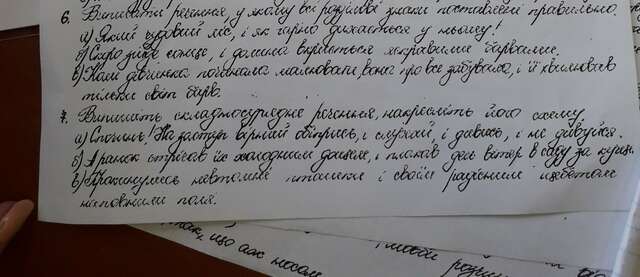 6. Виписати речення, у якому всі розділові знаки поставлені правильно.
а) Який чудовий ліс, і як гарно дихається у ньому!
б) Скоро зійде сонце, і долина вкриється яскравими барвами.
в) Коли дівчинка починала малювати, вона про все забувала, і її хвилював
тільки світ барв.
7. Випишіть складносурядне речення, накресліть його схему
а) Спочинь! На заступ вірний обіпрись, і слухай, і дивись, і не дивуйся.
б) А ранок стрічав їх холодним дощем, і плакав десь вітер в саду за кущем.
в) Прокинулись невтомні пташки і своїм радісним щебетом
наповнили поля.
так, що аж